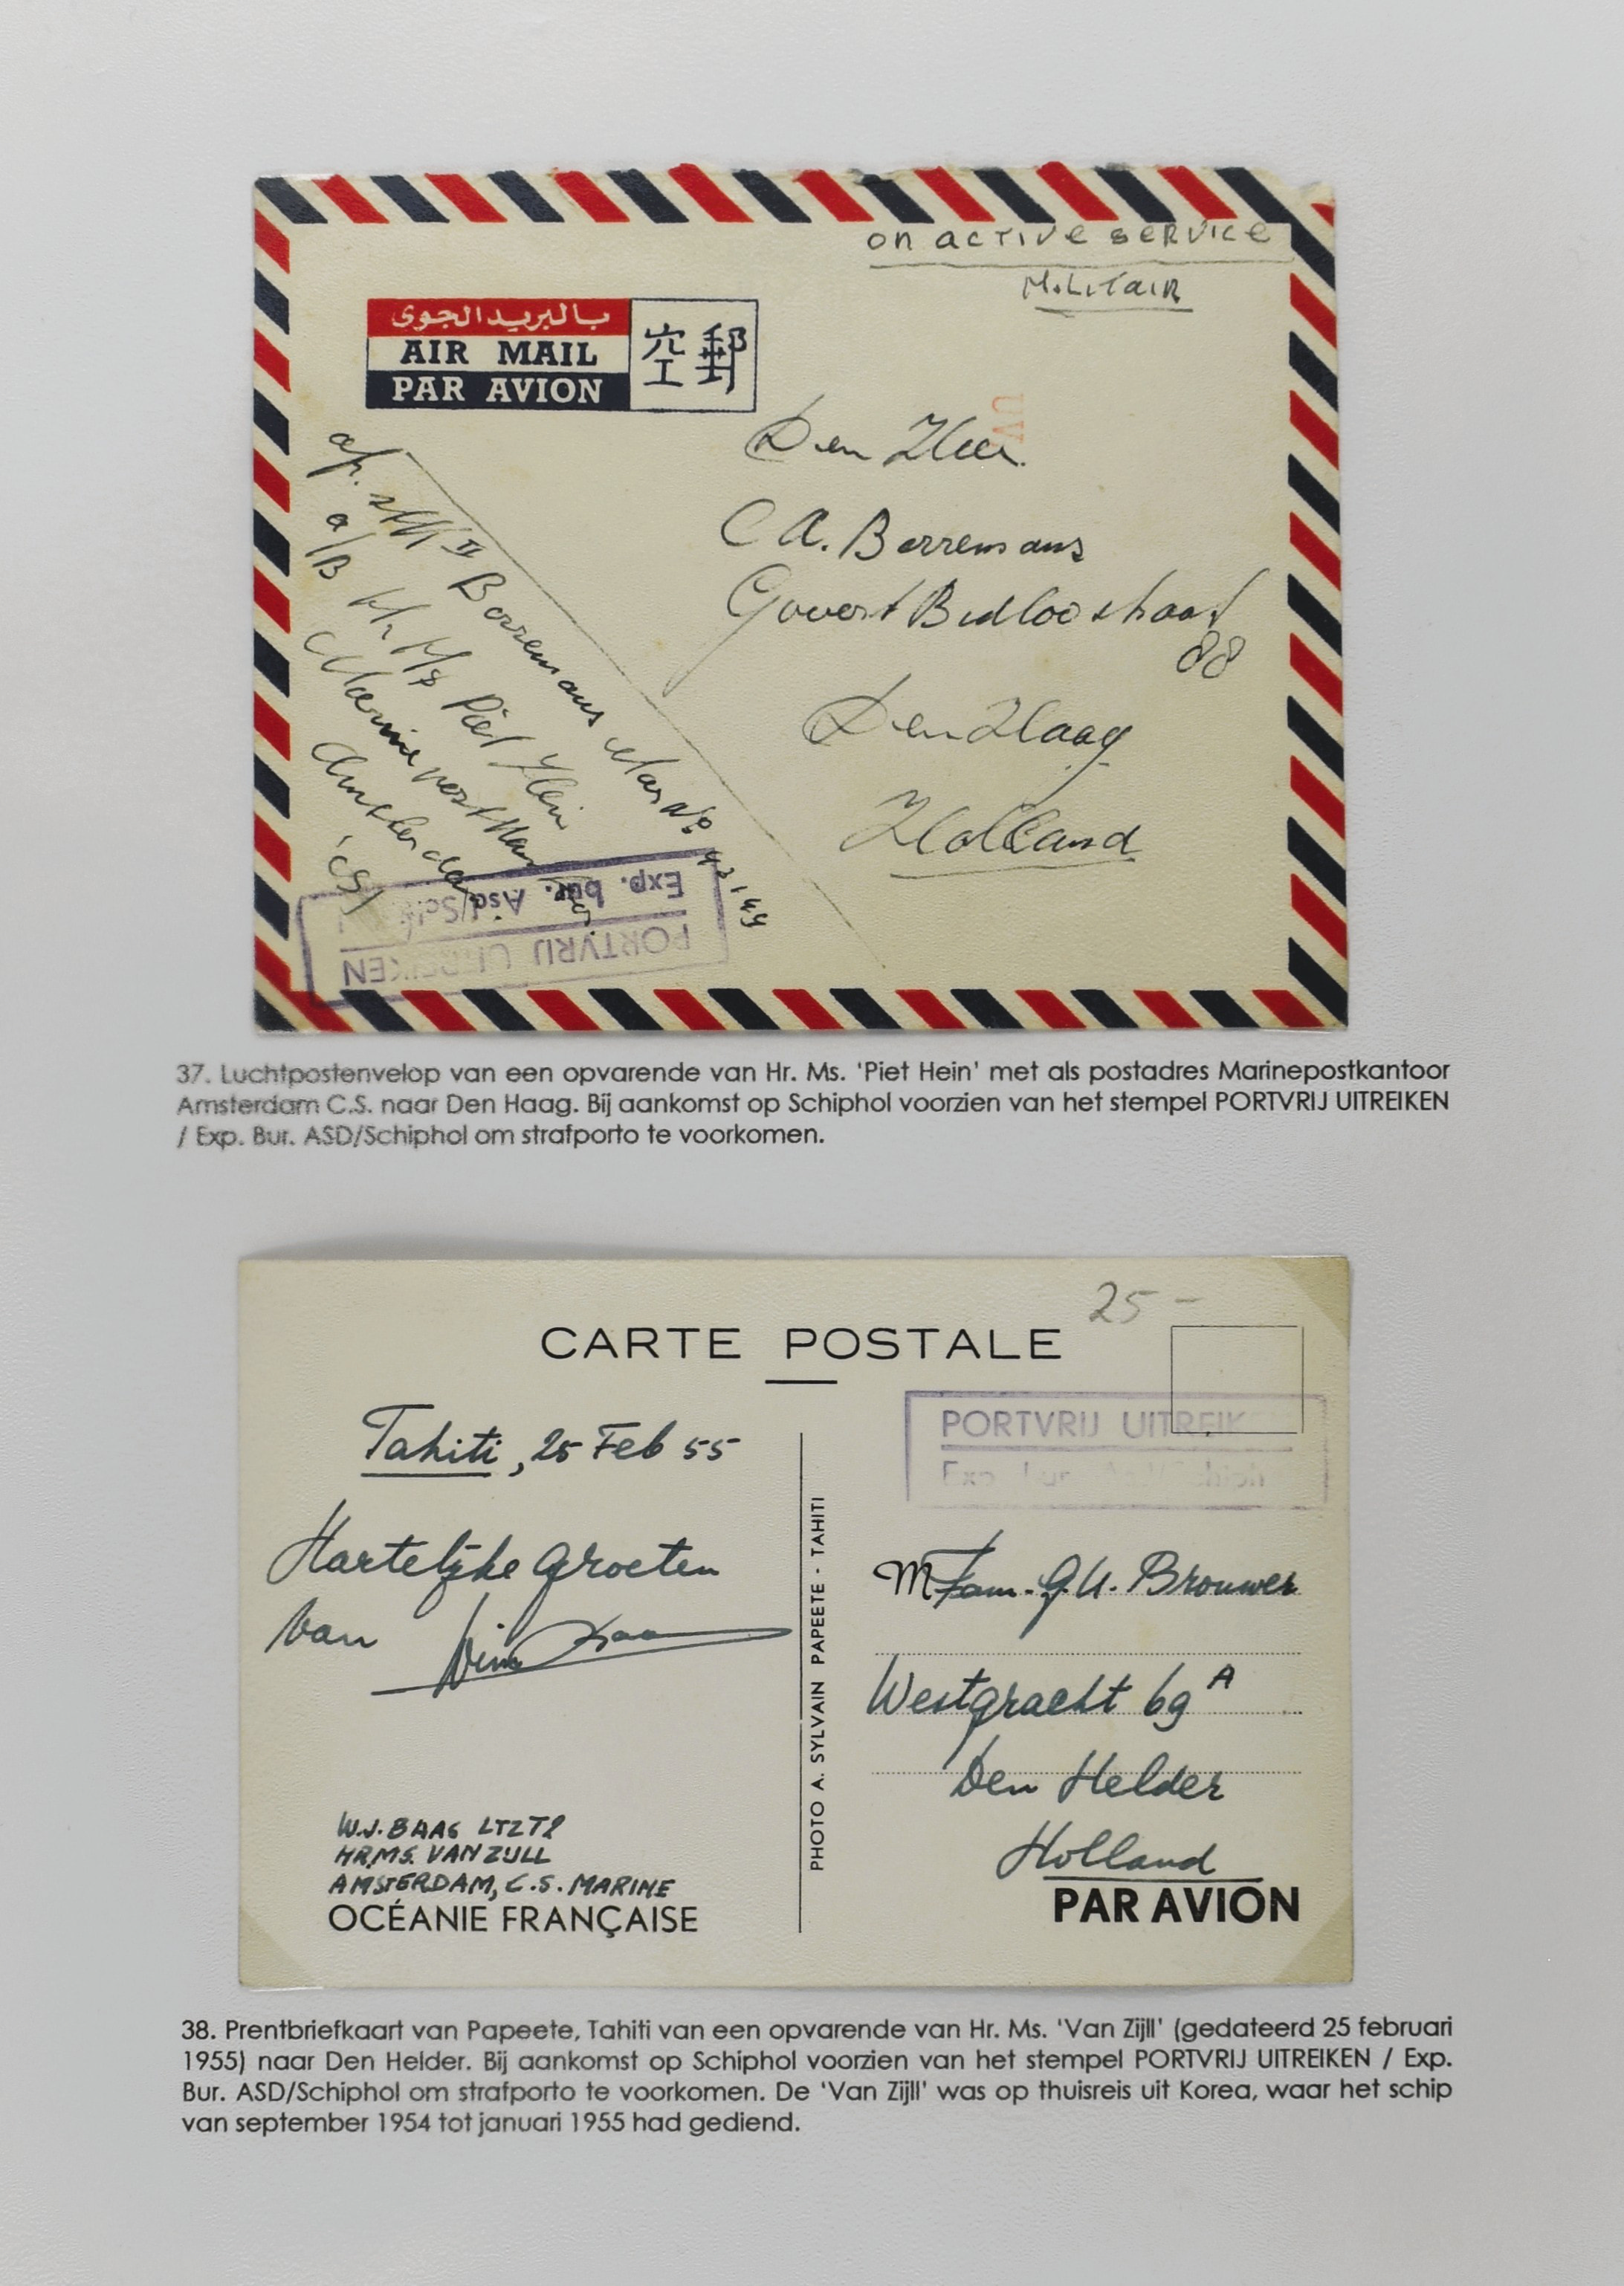 on active service
Militair
بالبريد الجوى
AIR MAIL
PAR AVION
空郵
Den Heer
C A. Borremans
Govert Bidloostraat
88
Den Haag
Holland
Borremans
a/B Hr Ms Piet Hein
Amsterdam
CS
PORTVRIJ UITREIKEN
Exp. bur. Asd/Sch
37. Luchtpostenvelop van een opvarende van Hr. Ms. 'Piet Hein' met als postadres Marinepostkantoor
Amsterdam C.S. naar Den Haag. Bij aankomst op Schiphol voorzien van het stempel PORTVRIJ UITREIKEN
/ Exp. Bur. ASD/Schiphol om strafporto te voorkomen.
25 -
CARTE POSTALE
PORTVRIJ UITREIK
Tahiti, 25 Feb 55
Hartelijke groeten
van Wim
W.J. BAAS LTZT2
HR.MS. VAN ZIJLL
AMSTERDAM, C.S. MARINE
OCÉANIE FRANÇAISE
PHOTO A. SYLVAIN PAPEETE - TAHITI
M Fam. G.U. Brouwer
Westgracht 69 A
Den Helder
Holland
PAR AVION
38. Prentbriefkaart van Papeete, Tahiti van een opvarende van Hr. Ms. 'Van Zijll' (gedateerd 25 februari
1955) naar Den Helder. Bij aankomst op Schiphol voorzien van het stempel PORTVRIJ UITREIKEN / Exp.
Bur. ASD/Schiphol om strafporto te voorkomen. De 'Van Zijll' was op thuisreis uit Korea, waar het schip
van september 1954 tot januari 1955 had gediend.